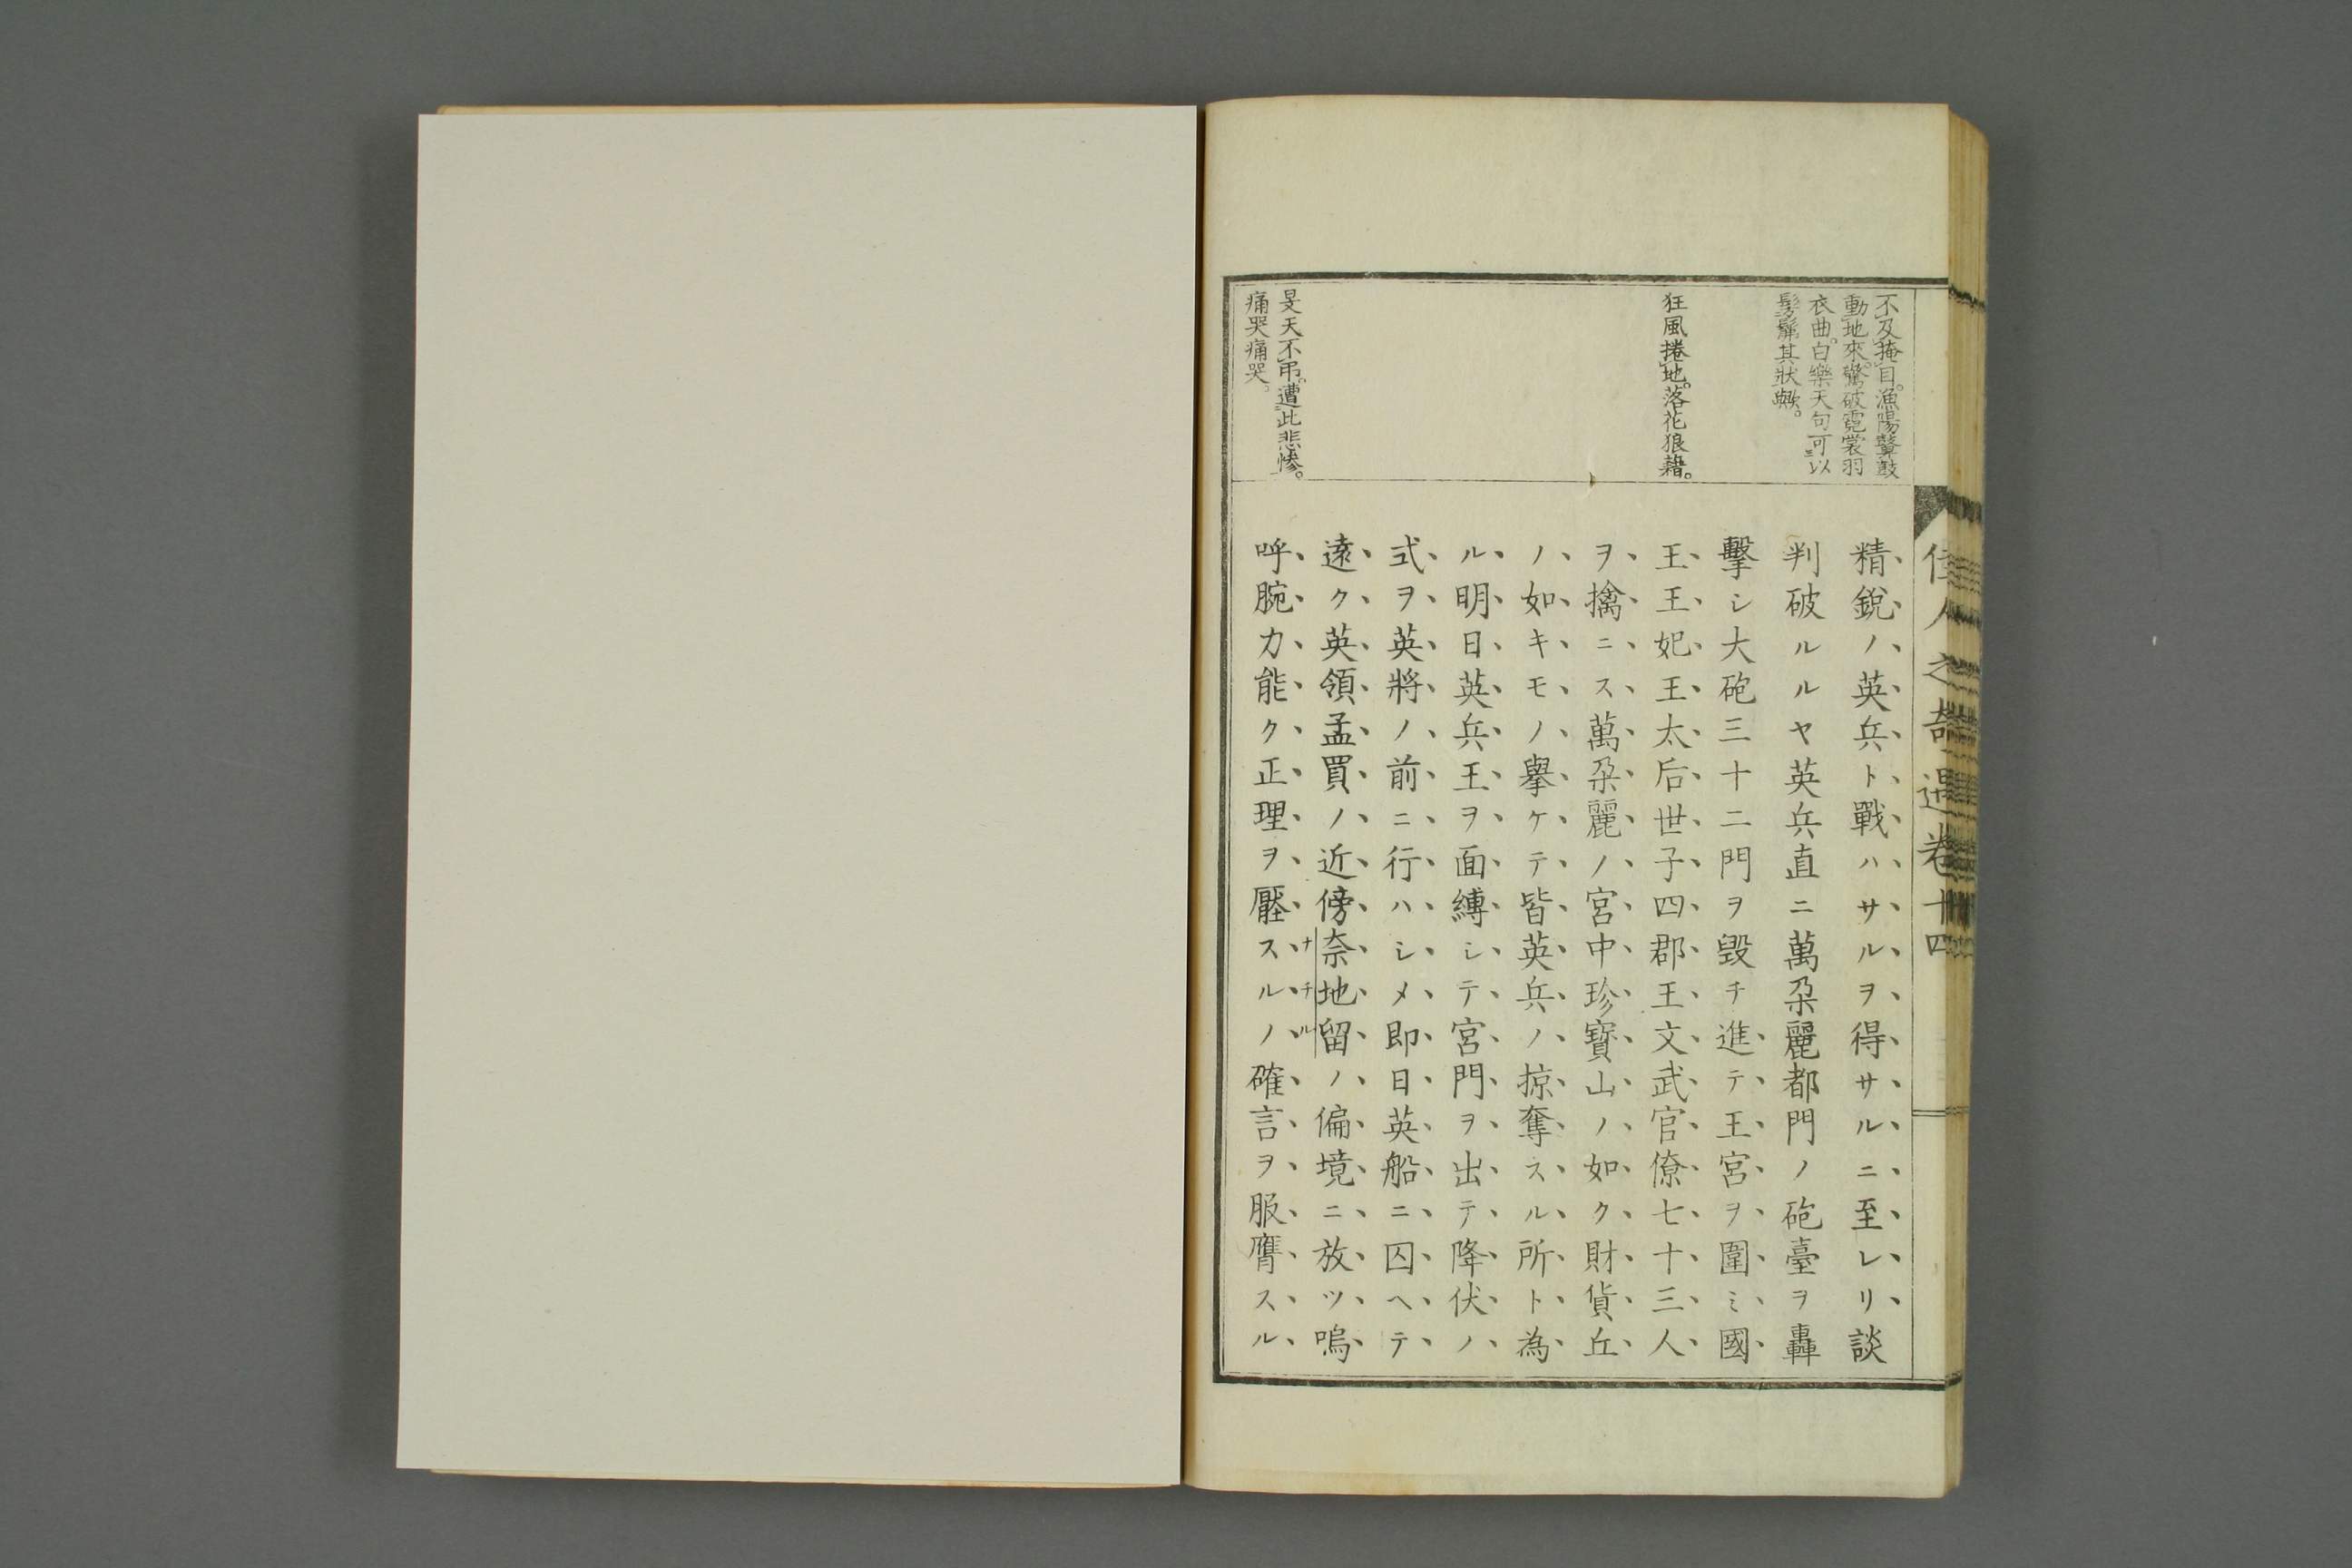 佳人之奇遇卷十四
不及掩目。漁陽鼙鼓
動地來。驚破霓裳羽
衣曲。白樂天句可以
髣髴其狀歟。
狂風捲地。落花狼藉。
旻天不弔。遭此悲慘。
痛哭痛哭。
精銳ノ英兵ト戰ハサルヲ得サルニ至レリ談
判破ルルヤ英兵直ニ萬朶麗都門ノ砲臺ヲ轟
擊シ大砲三十二門ヲ毀チ進テ王宮ヲ圍ミ國
王王妃王太后世子四郡王文武官僚七十三人
ヲ擒ニス萬朶麗ノ宮中珍寶山ノ如ク財貨丘
ノ如キモノ擧ケテ皆英兵ノ掠奪スル所ト為
ル明日英兵王ヲ面縛シテ宮門ヲ出テ降伏ノ
式ヲ英將ノ前ニ行ハシメ即日英船ニ囚ヘテ
遠ク英領孟買ノ近傍奈地留ノ偏境ニ放ツ嗚
ナチル
呼腕力能ク正理ヲ壓スルノ確言ヲ服膺スル